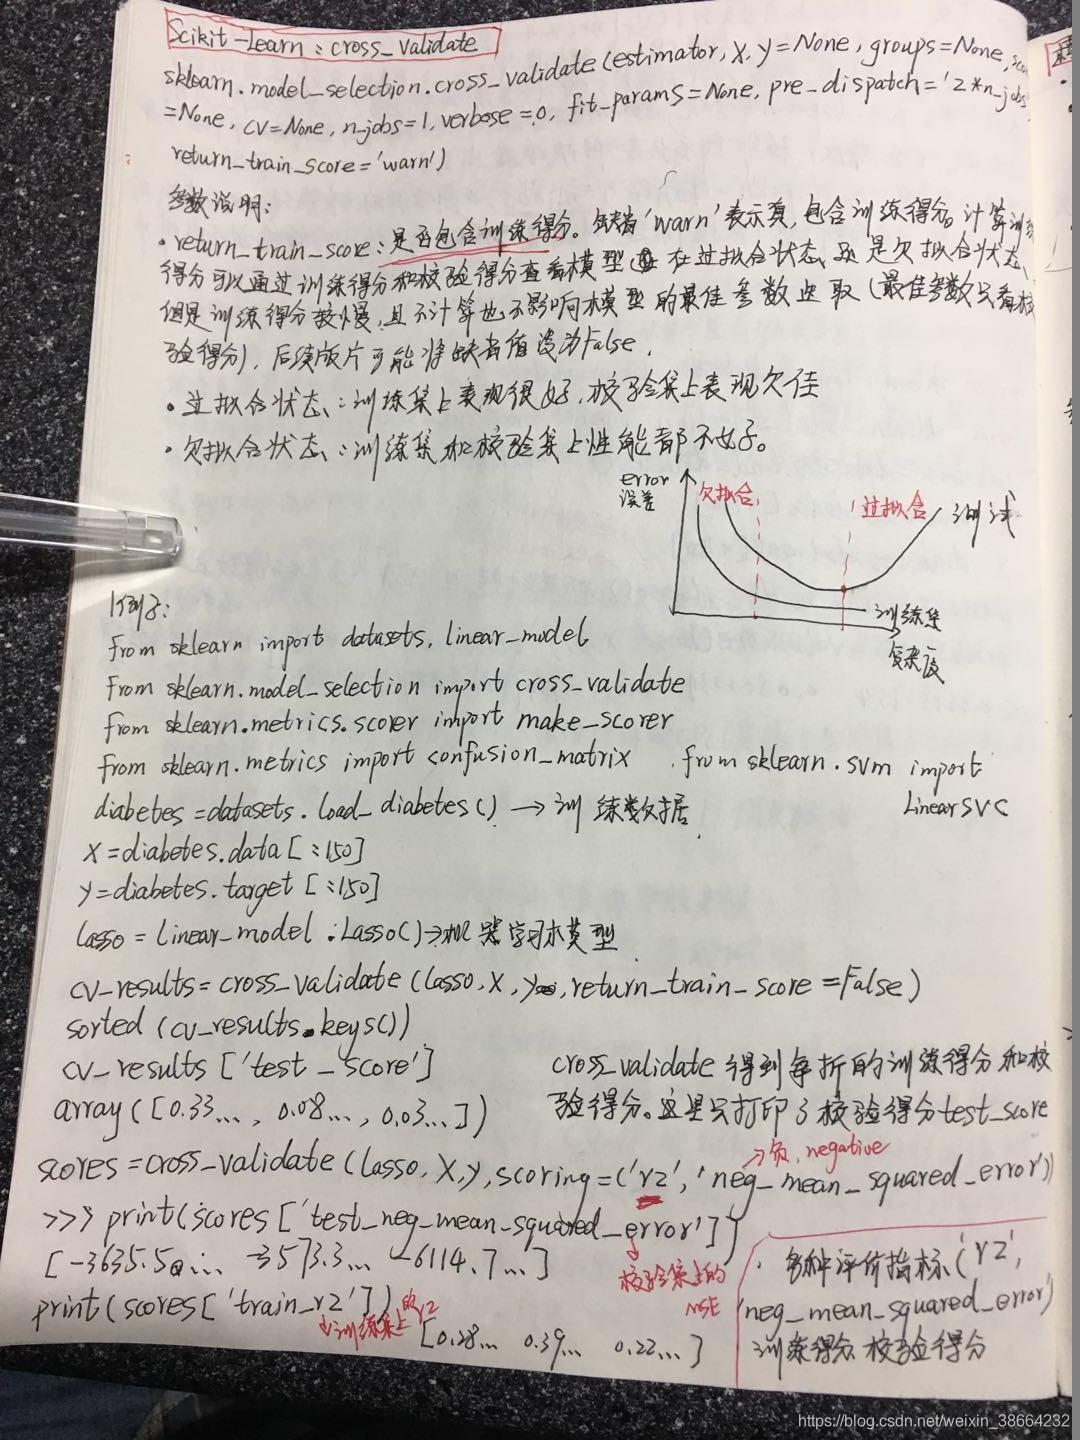 Scikit-Learn：cross_validate
sklearn.model_selection.cross_validate(estimator, X, y=None, groups=None,
=None, cv=None, n_jobs=1, verbose=0, fit_params=None, pre_dispatch='2*n_jobs
return_train_score='warn')
参数说明:
·return_train_score:是否包含训练得分。缺省'warn'表示真,包含训练得分。计算训练
得分可以通过训练得分和校验得分查看模型 在过拟合状态、还是欠拟合状态、
但是训练得分较慢,且不计算也不影响模型的最佳参数选取(最佳参数只看校
验得分),后续版本可能将缺省值设为False.
·过拟合状态:训练集上表现很好,校验集上表现欠佳
·欠拟合状态:训练集和校验集上性能都不好。
error
误差
欠拟合
过拟合
测试
训练集
复杂度
例子:
from sklearn import datasets, linear_model
from sklearn.model_selection import cross_validate
from sklearn.metrics.scorer import make_scorer
from sklearn.metrics import confusion_matrix from sklearn.svm import
LinearSVC
diabetes=datasets.load_diabetes() → 训练数据
X=diabetes.data[:150]
y=diabetes.target[:150]
lasso = linear_model.Lasso()→机器学习模型
cv_results=cross_validate(lasso, X, y, return_train_score=False)
sorted(cv_results.keys())
cv_results['test_score']
array([0.33..., 0.08..., 0.03...])
cross_validate得到每折的训练得分和校
验得分。这里只打印了校验得分test_score
scores=cross_validate(lasso, X, y, scoring=('r2', 'neg_mean_squared_error'))
→负, negative
>>> print(scores['test_neg_mean_squared_error'])
[-3635.5... -3573.3... -6114.7...]
校验集上的
MSE
print(scores['train_r2'])
训练集上的r2
[0.28... 0.39... 0.22...]
·多种评价指标('r2',
'neg_mean_squared_error)
训练得分 校验得分
https://blog.csdn.net/weixin_38664232